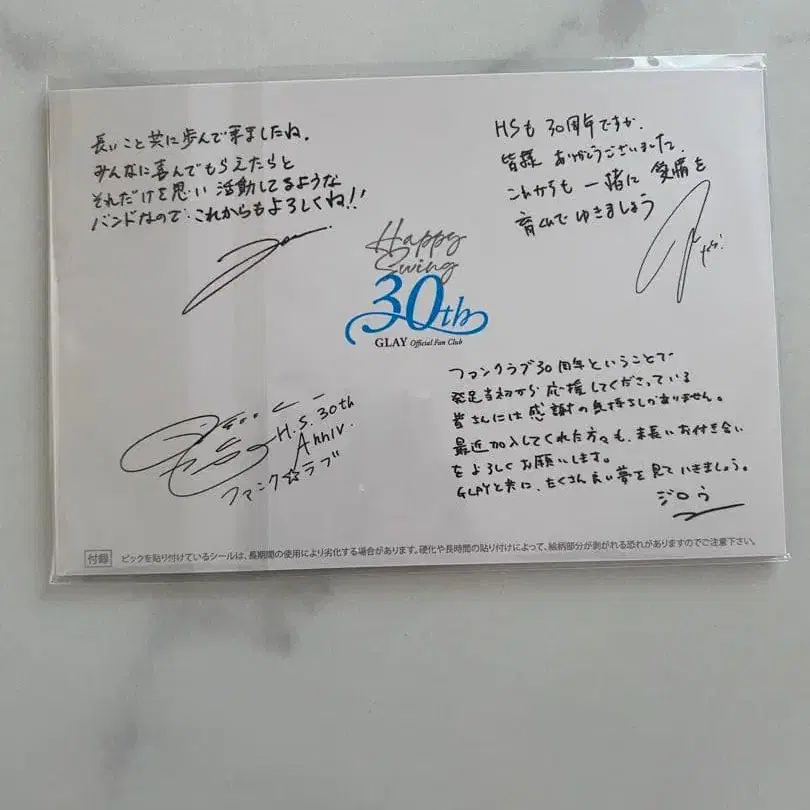 長いこと共に歩んで来ましたね。
みんなに喜んでもらえたらと
それだけを思い 活動してるような
バンドなので、これからもよろしくね!!
HSも 30周年ですか。
皆様 ありがとうございました。
これからも 一緒に 愛情を
育くんで ゆきましょう
Happy
Swing
30th
GLAY Official Fan Club
H.S. 30th
Anniv.
ファンク☆ラブ
ファンクラブ30周年ということで
発足当初から応援してくださっている
皆さんには感謝の気持ちしかありません。
最近加入してくれた方々も、末長いお付き合い
をよろしくお願いします。
GLAYと共に、たくさん良い夢を見ていきましょう。
ジロウ
付録 ピックを貼り付けているシールは、長期間の使用により劣化する場合があります。硬化や長時間の貼り付けによって、絵柄部分が剥がれる恐れがありますのでご注意下さい。